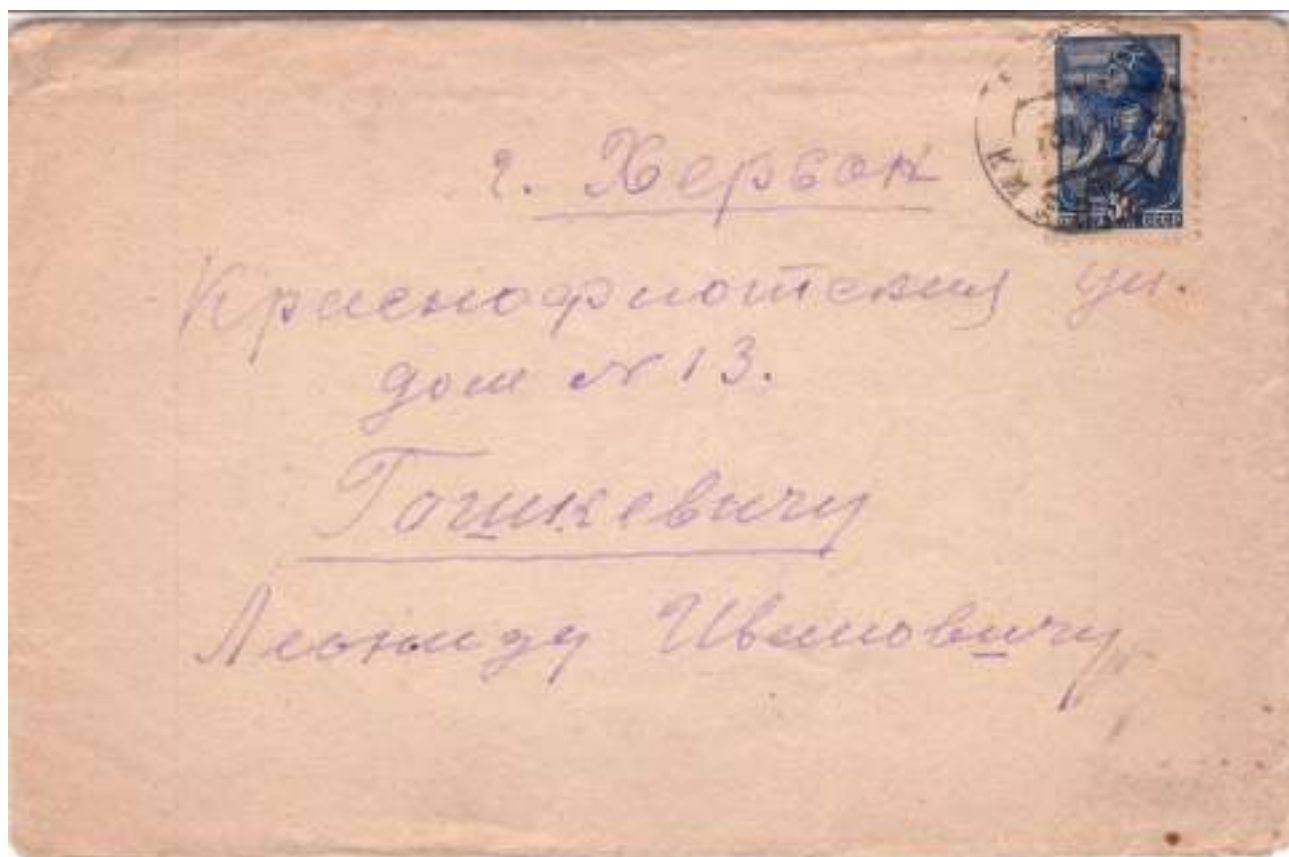 г. Херсон
Краснофлотская ул.
дом № 13.
Гошкевичу
Леониду Ивановичу
СССР